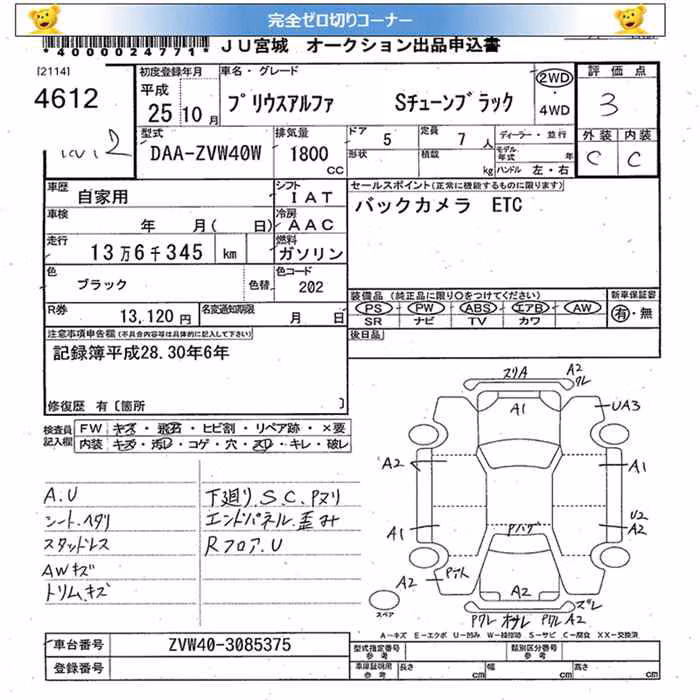 完全ゼロ切りコーナー
*4000024771* JU宮城 オークション出品申込書
[2114]
4612
初度登録年月
平成
25 10月
車名・グレード
プリウスアルファ Sチューンブラック
2WD
・
4WD
評価点
3
外装 内装
C C
型式
DAA-ZVW40W
排気量
1800
CC
ドア 5
形状
定員 7 人
積載 kg
ディーラー・並行
モデル年式 年
ハンドル 左・右
車歴
自家用
シフト
IAT
車検
年 月( 日)
冷房
AAC
走行
13万6千345 km
燃料
ガソリン
色
ブラック
色替
色コード
202
R券
13,120円
名変通知期限
月 日
セールスポイント(正常に機能するものに限ります)
バックカメラ ETC
装備品 (純正品に限り○をつけてください)
PS PW ABS エアB AW
SR ナビ TV カワ
新車保証書
有・無
後日品
注意事項申告欄(不具合内容等は具体的に記入して下さい)
記録簿平成28.30年6年
修復歴 有〔箇所 〕
検査員
記入欄
FW キズ・飛石・ヒビ割・リペア跡・×要
内装 キズ・汚レ・コゲ・穴・スレ・キレ・破レ
A.U
シートヘタリ
スタッドレス
AWキズ
トリム.キズ
下廻り.S.C.Pヌリ
エンドパネル.歪み
Rフロア.U
スリA A2
ワレ
A1
UA3
A2
A1
A1
U2
A2
Pハゲ
A2
A2
ズレ
Pワレ オサレ Pワレ A2
スペア
A-キズ E-エクボ U-凹み W-補修跡 S-サビ C-腐食 XX-交換済
車台番号 ZVW40-3085375
登録番号
型式指定番号
参考
類別区分番号
参考
車庫証明用
参考
長さ cm 幅 cm 高さ cm